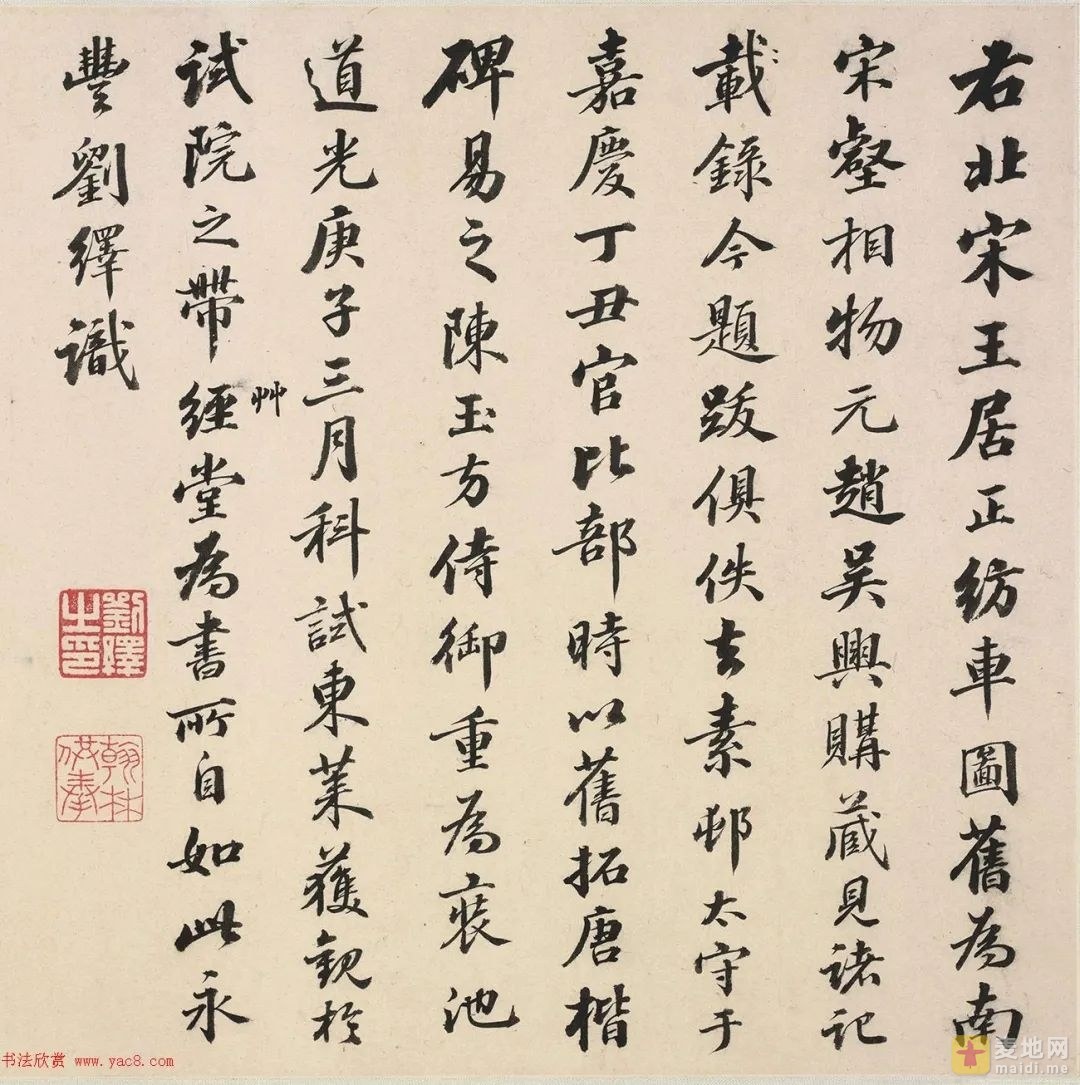 右北宋王居正紡車圖舊為南
宋壑相物元趙吳興購藏見諸記
載錄今題跋俱佚去素邨太守于
嘉慶丁丑官比部時以舊拓唐楷
碑易之陳玉方侍御重為裝池
道光庚子三月科試東萊獲觀於
試院之帶經艸堂為書所自如此永
豐劉繹識
劉繹之印
翰林供奉
书法欣赏 www.yac8.com
麦地网
maidi.me